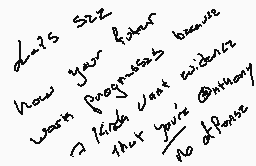 lets see
how your future
work progresses because
I kinda want evidence
that you're @nthony
no offense